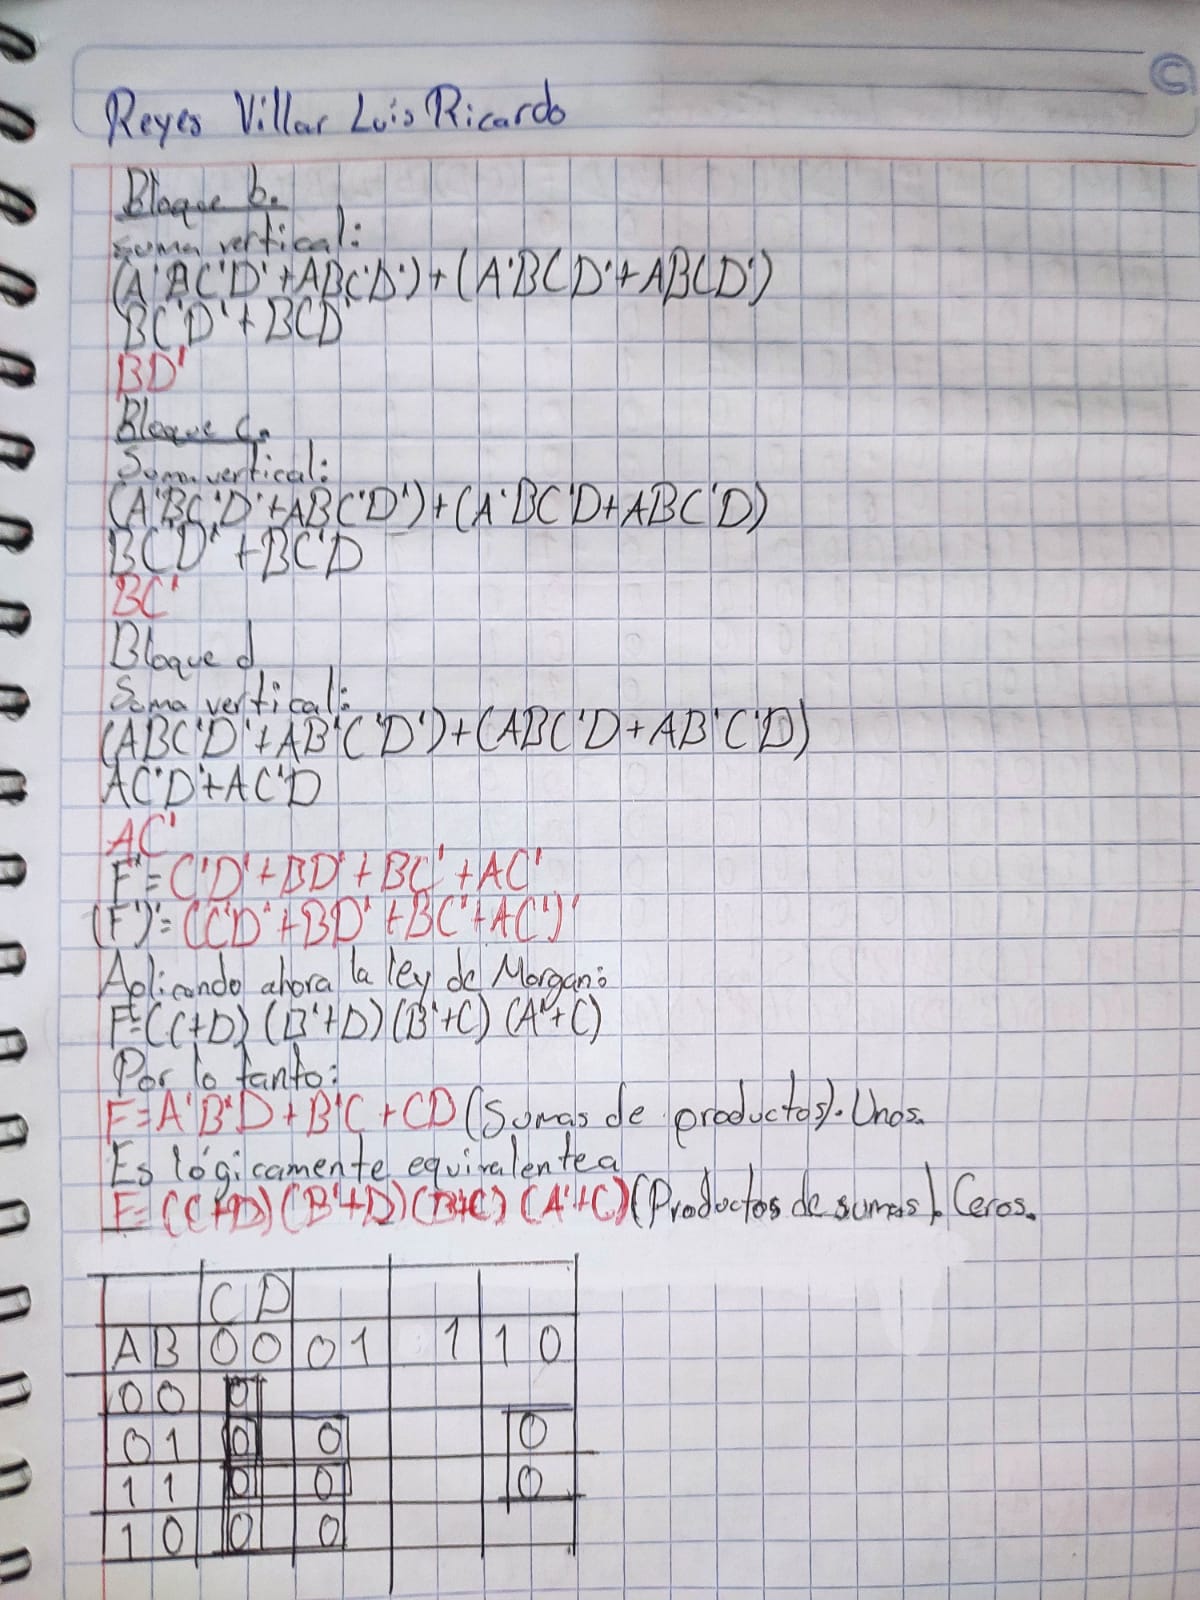 Reyes Villar Luis Ricardo
Bloque b.
suma vertical:
(A'BC'D'+ABC'D')+(A'BCD'+ABCD')
BC'D'+BCD'
BD'
Bloque c.
Suma vertical:
(A'BC'D'+ABC'D')+(A'BC'D+ABC'D)
BC'D'+BC'D
BC'
Bloque d
Suma vertical:
(ABC'D'+AB'C'D')+(ABC'D+AB'C'D)
AC'D'+AC'D
AC'
F'=C'D'+BD'+BC'+AC'
(F')'=(C'D'+BD'+BC'+AC')'
Aplicando ahora la ley de Morgan:
F=(C+D)(B'+D)(B'+C)(A'+C)
Por lo tanto:
F=A'B'D+B'C+CD(Sumas de productos). Unos.
Es lógicamente equivalente a
F=(C+D)(B'+D)(B'+C)(A'+C)(Productos de sumas). Ceros.
C D
A B 0 0 0 1 1 1 0
0 0 0
0 1 0 0 0
1 1 0 0 0
1 0 0 0